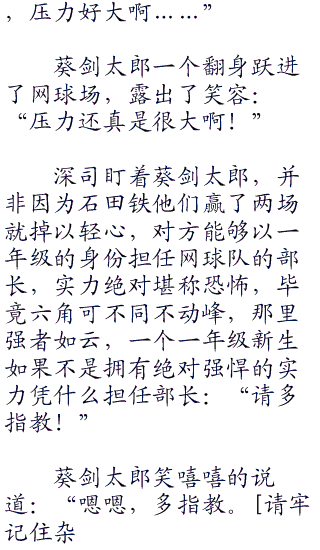 ，压力好大啊……”
葵剑太郎一个翻身跃进
了网球场，露出了笑容：
“压力还真是很大啊！”
深司盯着葵剑太郎，并
非因为石田铁他们赢了两场
就掉以轻心，对方能够以一
年级的身份担任网球队的部
长，实力绝对堪称恐怖，毕
竟六角可不同不动峰，那里
强者如云，一个一年级新生
如果不是拥有绝对强悍的实
力凭什么担任部长：“请多
指教！”
葵剑太郎笑嘻嘻的说
道：“嗯嗯，多指教。[请牢
记住杂